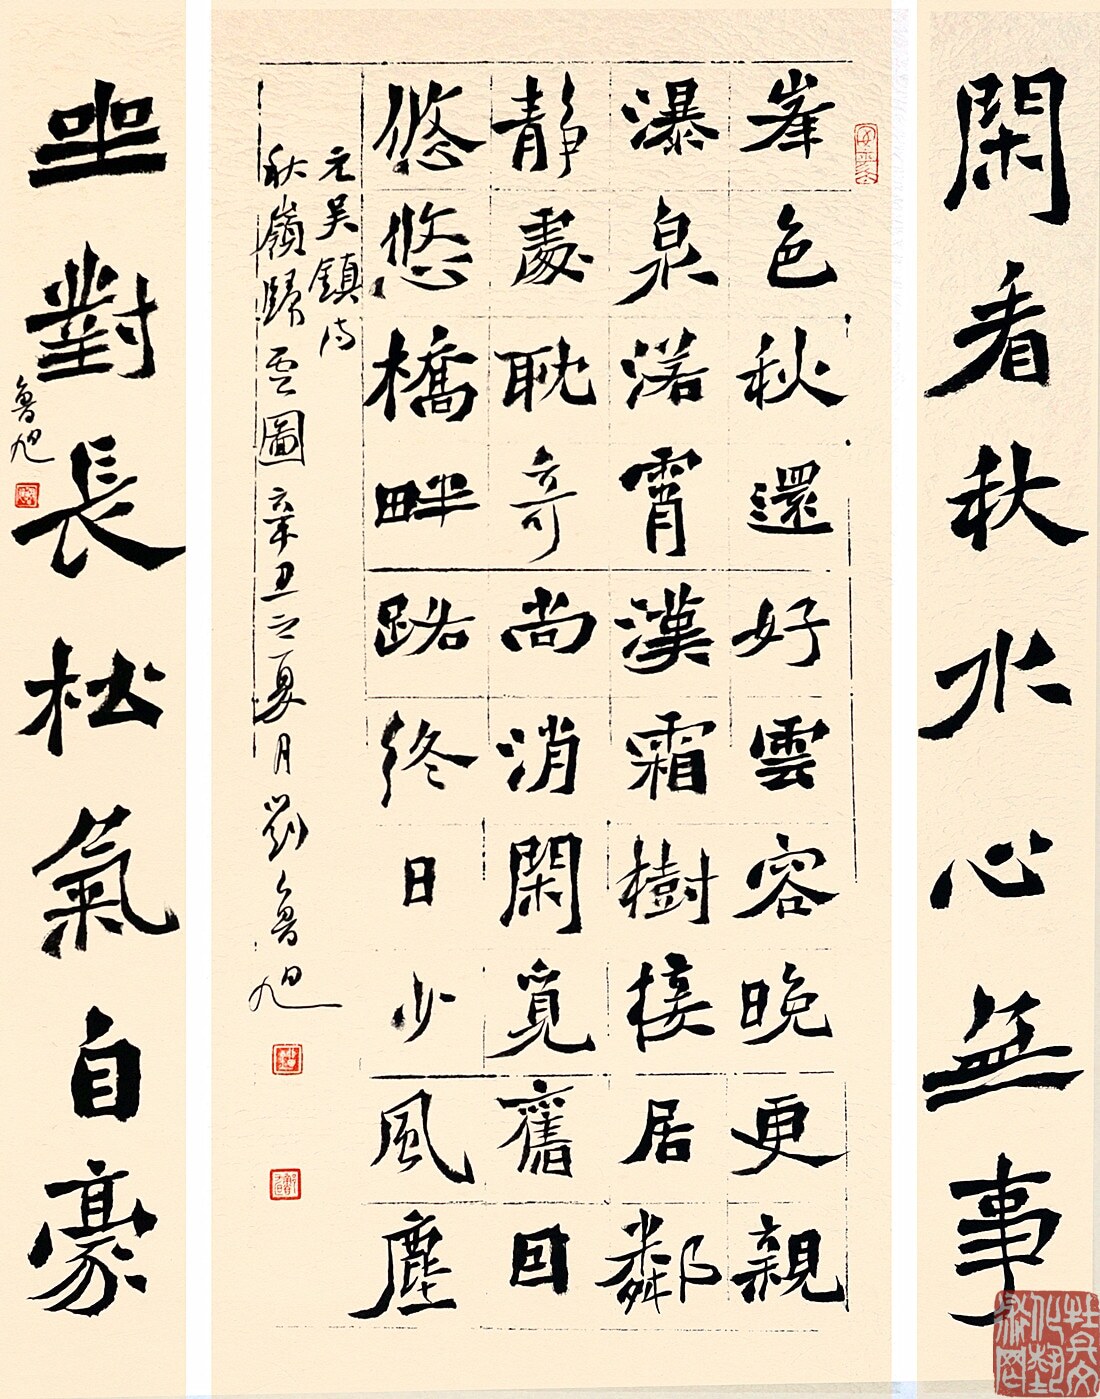 閑看秋水心無事
峯色秋還好雲容晚更親
瀑泉落霄漢霜樹棲居鄰
静處耽奇尚消閑覓舊因
悠悠橋畔路終日少風塵
元吴鎮诗
秋嶺歸雲圖辛丑之夏月劉魯旭
坐對長松氣自豪
魯旭